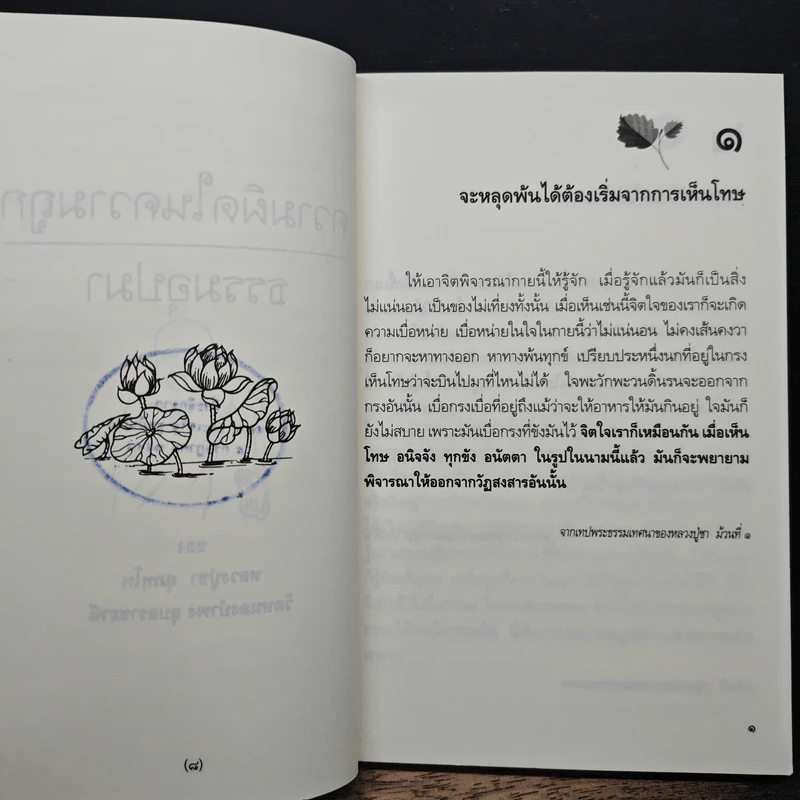 (๘)
๑
จะหลุดพ้นได้ต้องเริ่มจากการเห็นโทษ
ให้เอาจิตพิจารณากายนี้ให้รู้จัก เมื่อรู้จักแล้วมันก็เป็นสิ่ง
ไม่แน่นอน เป็นของไม่เที่ยงทั้งนั้น เมื่อเห็นเช่นนี้จิตใจของเราก็จะเกิด
ความเบื่อหน่าย เบื่อหน่ายในใจในกายนี้ว่าไม่แน่นอน ไม่คงเส้นคงวา
ก็อยากจะหาทางออก หาทางพ้นทุกข์ เปรียบประหนึ่งนกที่อยู่ในกรง
เห็นโทษว่าจะบินไปมาที่ไหนไม่ได้ ใจพะวักพะวนดิ้นรนจะออกจาก
กรงอันนั้น เบื่อกรงเบื่อที่อยู่ถึงแม้ว่าจะให้อาหารให้มันกินอยู่ ใจมันก็
ยังไม่สบาย เพราะมันเบื่อกรงที่ขังมันไว้ จิตใจเราก็เหมือนกัน เมื่อเห็น
โทษ อนิจจัง ทุกขัง อนัตตา ในรูปในนามนี้แล้ว มันก็จะพยายาม
พิจารณาให้ออกจากวัฏสงสารอันนั้น
จากเทปพระธรรมเทศนาของหลวงปู่ชา ม้วนที่ ๑
๑